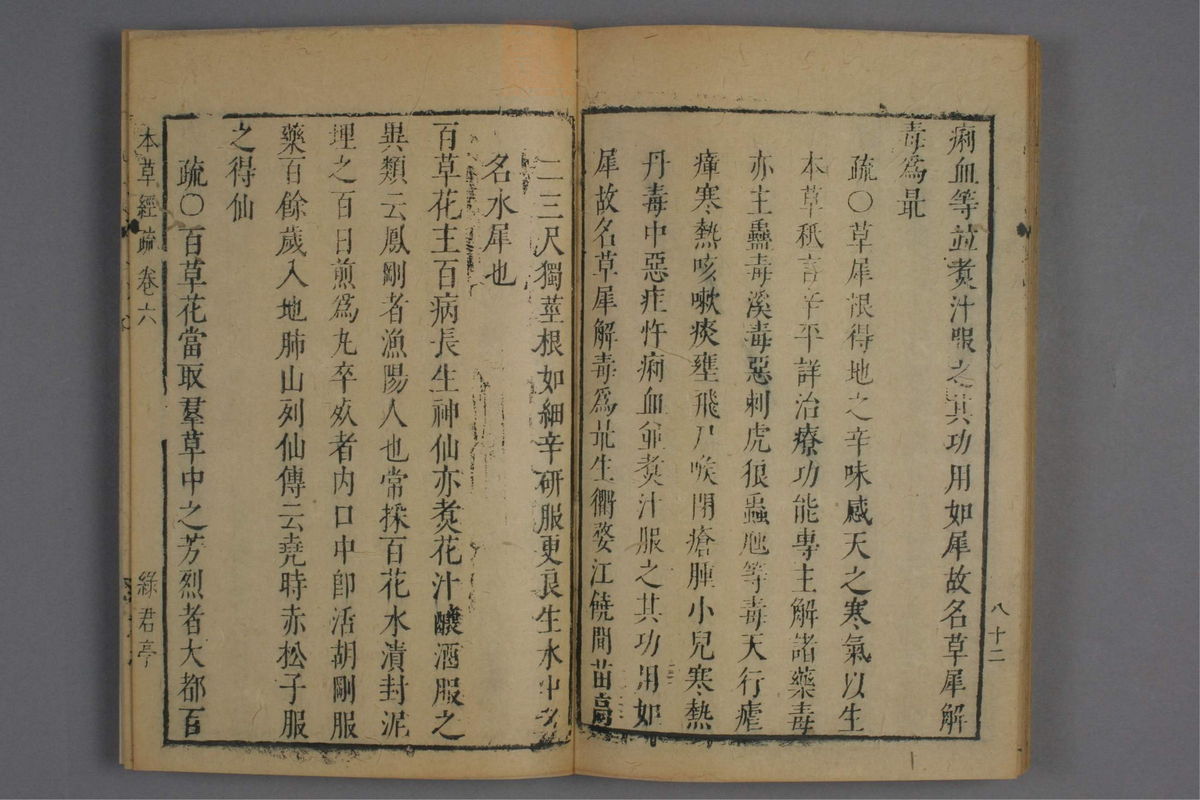 痢血等並煑汁服之其功用如犀故名草犀解
毒爲最
疏〇草犀根得地之辛味感天之寒氣以生
本草秖言辛平詳治療功能專主解諸藥毒
亦主蠱毒溪毒惡刺虎狼蟲虺等毒天行瘧
瘴寒熱咳嗽痰壅飛尸喉閉瘡腫小兒寒熱
丹毒中惡疰忤痢血並煑汁服之其功用如
犀故名草犀解毒爲最生衢婺江饒間苗高
八十二
二三尺獨莖根如細辛研服更良生水中者
名水犀也
百草花主百病長生神仙亦煑花汁釀酒服之
異類云鳳剛者漁陽人也常採百花水漬封泥
埋之百日煎爲丸卒死者内口中卽活胡剛服
藥百餘歲入地肺山列仙傳云堯時赤松子服
之得仙
疏〇百草花當取羣草中之芳烈者大都百
本草經疏 卷六
綠君亭